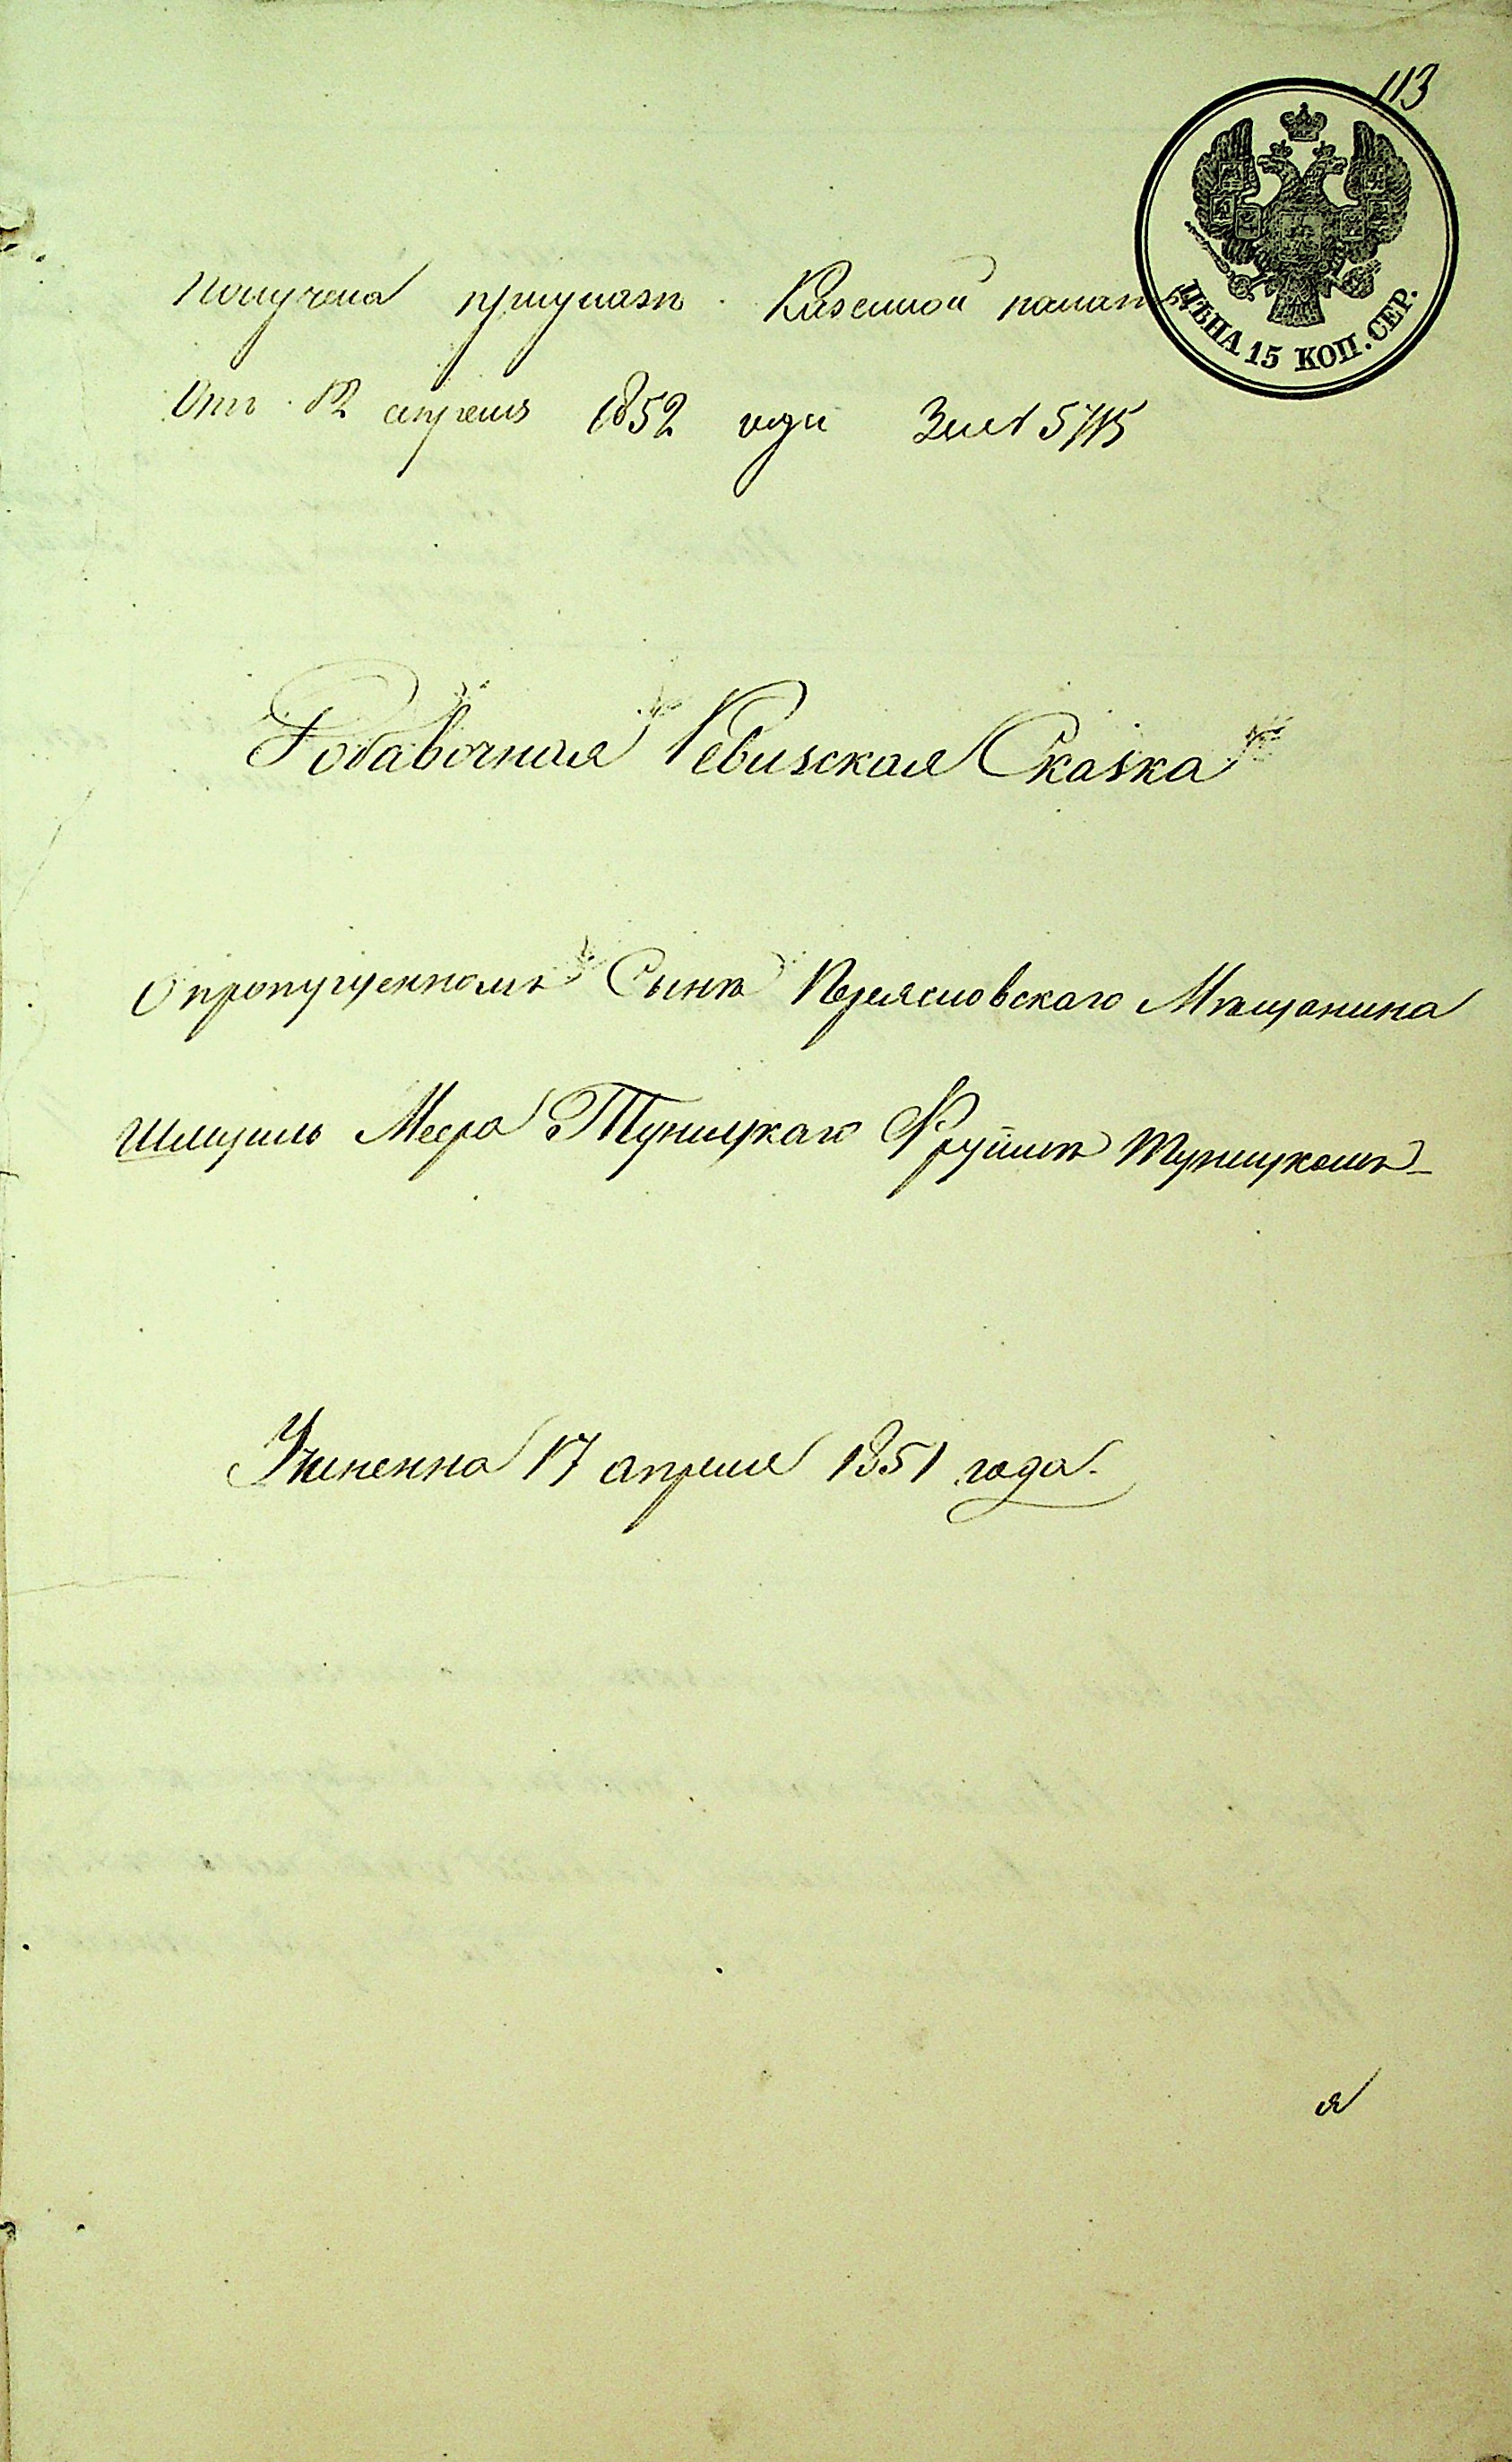 113
ЦѢНА 15 КОП. СЕР.
Получена при указѣ Казенной палаты
Отъ 12 апреля 1852 года За №
Добавочная Ревизская Сказка
О пропущенномъ Сынѣ Переяславскаго Мѣщанина
Шмуиль Меера Туницкаго Фруимѣ Туницкомъ
Учиненна 17 апреля 1851 года.
я